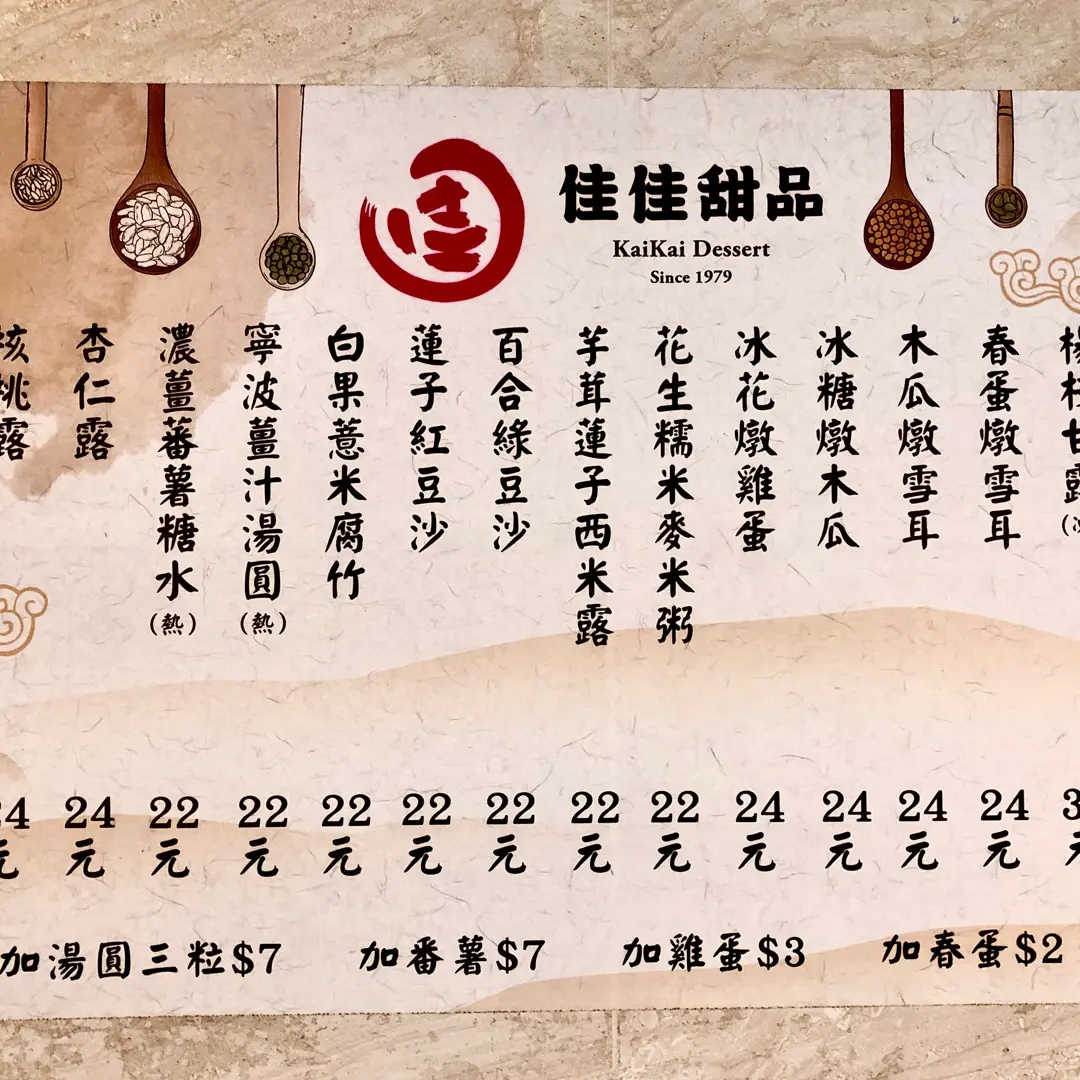 佳
佳佳甜品
KaiKai Dessert
Since 1979
楊枝甘露
春蛋燉雪耳 24元
木瓜燉雪耳 24元
冰糖燉木瓜 24元
冰花燉雞蛋 24元
花生糯米麥米粥 22元
芋茸蓮子西米露 22元
百合綠豆沙 22元
蓮子紅豆沙 22元
白果薏米腐竹 22元
寧波薑汁湯圓(熱) 22元
濃薑蕃薯糖水(熱) 22元
杏仁露 24元
核桃露 24元
加湯圓三粒$7
加番薯$7
加雞蛋$3
加春蛋$2